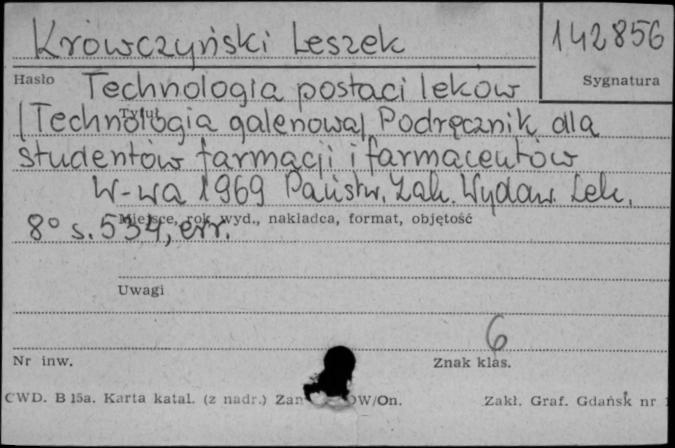 Krówczyński Leszek
142856
Hasło
Sygnatura
Technologia postaci leków
Tytuł
/Technologia galenowa/. Podręcznik dla
studentów farmacji i farmaceutów
W-wa 1969 Państw. Zak. Wydaw. Lek.
Miejsce, rok wyd., nakładca, format, objętość
8° s. 534, err.
Uwagi
6
Nr inw.
Znak klas.
CWD. B 15a. Karta katal. (z nadr.) Zam OW/On.
Zakł. Graf. Gdańsk nr